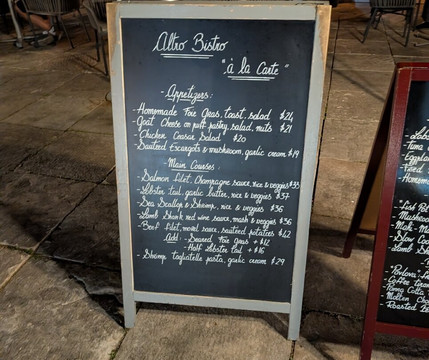 Altro Bistro
"à la Carte"
- Appetizers:
- Homemade Foie Gras, toast, salad $24
- Goat Cheese on puff pastry, salad, nuts $21
- Chicken Ceasar Salad $20
- Sautéed Escargots & mushroom, garlic cream $19
- Main Courses:
- Salmon filet, Champagne sauce, rice & veggies $33
- Lobster tail, garlic butter, rice & veggies $37
- Sea Scallop & Shrimp, rice & veggies $36
- Lamb Shank, red wine sauce, mash & veggies $36
- Beef filet, morel sauce, sautéed potatoes $42
Add - Seared Foie Gras + $12
- Half Lobster tail + $16
- Shrimp tagliatelle pasta, garlic cream $29
- Tuna
- Mushroom
- Slow Coo
- Lamb Sha
- "Pavlova"
- Coffee tiram
- Panna Cotta
- Molten Cho
- Roasted